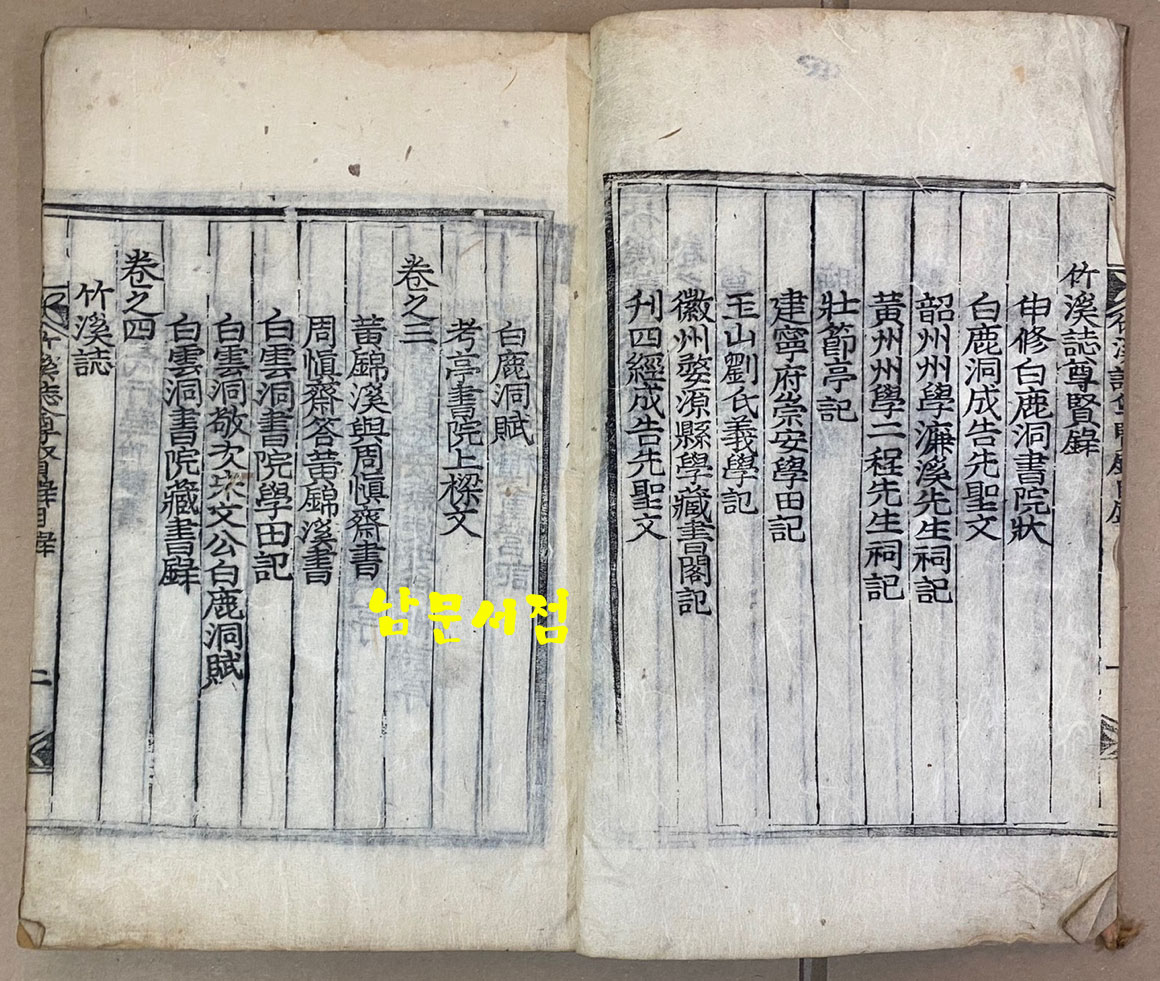 竹溪誌尊賢錄
申修白鹿洞書院狀
白鹿洞成告先聖文
韶州州學濂溪先生祠記
黃州州學二程先生祠記
壯節亭記
建寧府崇安學田記
玉山劉氏義學記
徽州婺源縣學藏書閣記
刊四經成告先聖文
白鹿洞賦
考亭書院上樑文
卷之三
黃錦溪與周愼齋書
周愼齋答黃錦溪書
白雲洞書院學田記
白雲洞敬次朱文公白鹿洞賦
白雲洞書院藏書錄
卷之四
竹溪誌
竹溪誌尊賢錄目錄
二
남문서점